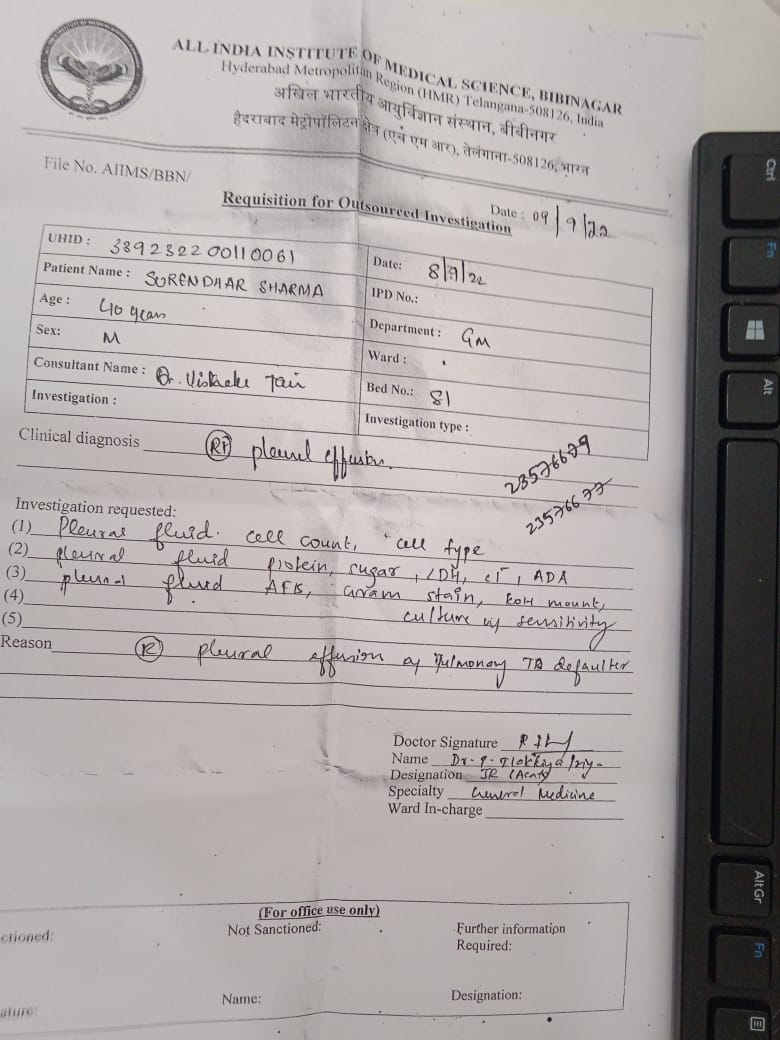 ALL INDIA INSTITUTE OF MEDICAL SCIENCE, BIBINAGAR
Hyderabad Metropolitan Region (HMR) Telangana-508126, India
अखिल भारतीय आयुर्विज्ञान संस्थान, बीबीनगर
हैदराबाद मेट्रोपॉलिटन क्षेत्र (एच एम आर), तेलंगाना-508126, भारत
File No. AIIMS/BBN/
Date : 09/9/22
Requisition for Outsourced Investigation
UHID : 389232200110061
Date: 8/9/22
Patient Name : SURENDHAR SHARMA
IPD No.:
Age : 40 years
Department : GM
Sex: M
Ward :
Consultant Name : Dr.
Bed No.: 81
Investigation :
Investigation type :
Clinical diagnosis Rt pleural effusion.
23576679
23576677
Investigation requested:
(1) Pleural fluid. cell count, cell type
(2) pleural fluid protein, sugar, LDH, ADA
(3) pleural fluid AFB, Gram stain, KOH mount,
(4) culture sensitivity
(5)
Reason R pleural effusion Pulmonary TB defaulter
Doctor Signature
Name Dr. P.
Designation JR (Acad)
Specialty General Medicine
Ward In-charge
(For office use only)
ctioned:
Not Sanctioned:
Further information
Required:
ature:
Name:
Designation:
Ctrl
Fn
Alt
AltGr
Fn